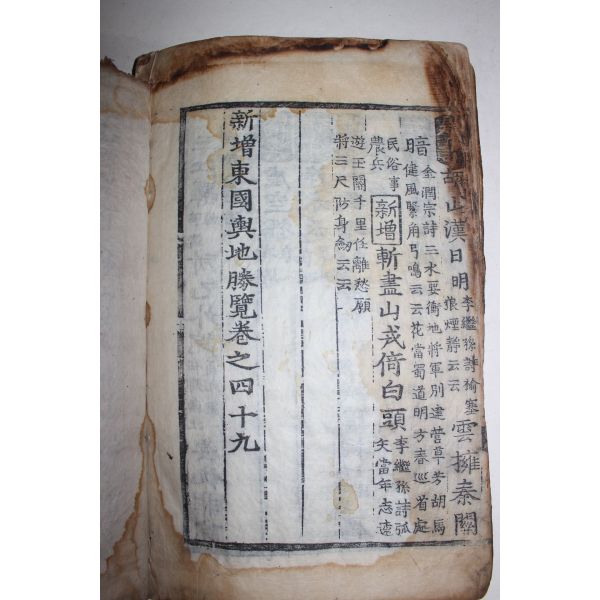 山漢日明李繼孫詩楡塞狼煙靜云云雲擁秦關
暗金潤宗詩三水要衝地將軍別建營草芳胡馬健風緊角弓鳴云云花當蜀道明方春巡省處
民俗事農兵新增斬盡山戎倚白頭李繼孫詩弧矢當年志遠
遊玉關千里任離愁願將三尺防身劍云云
新增東國輿地勝覽卷之四十九